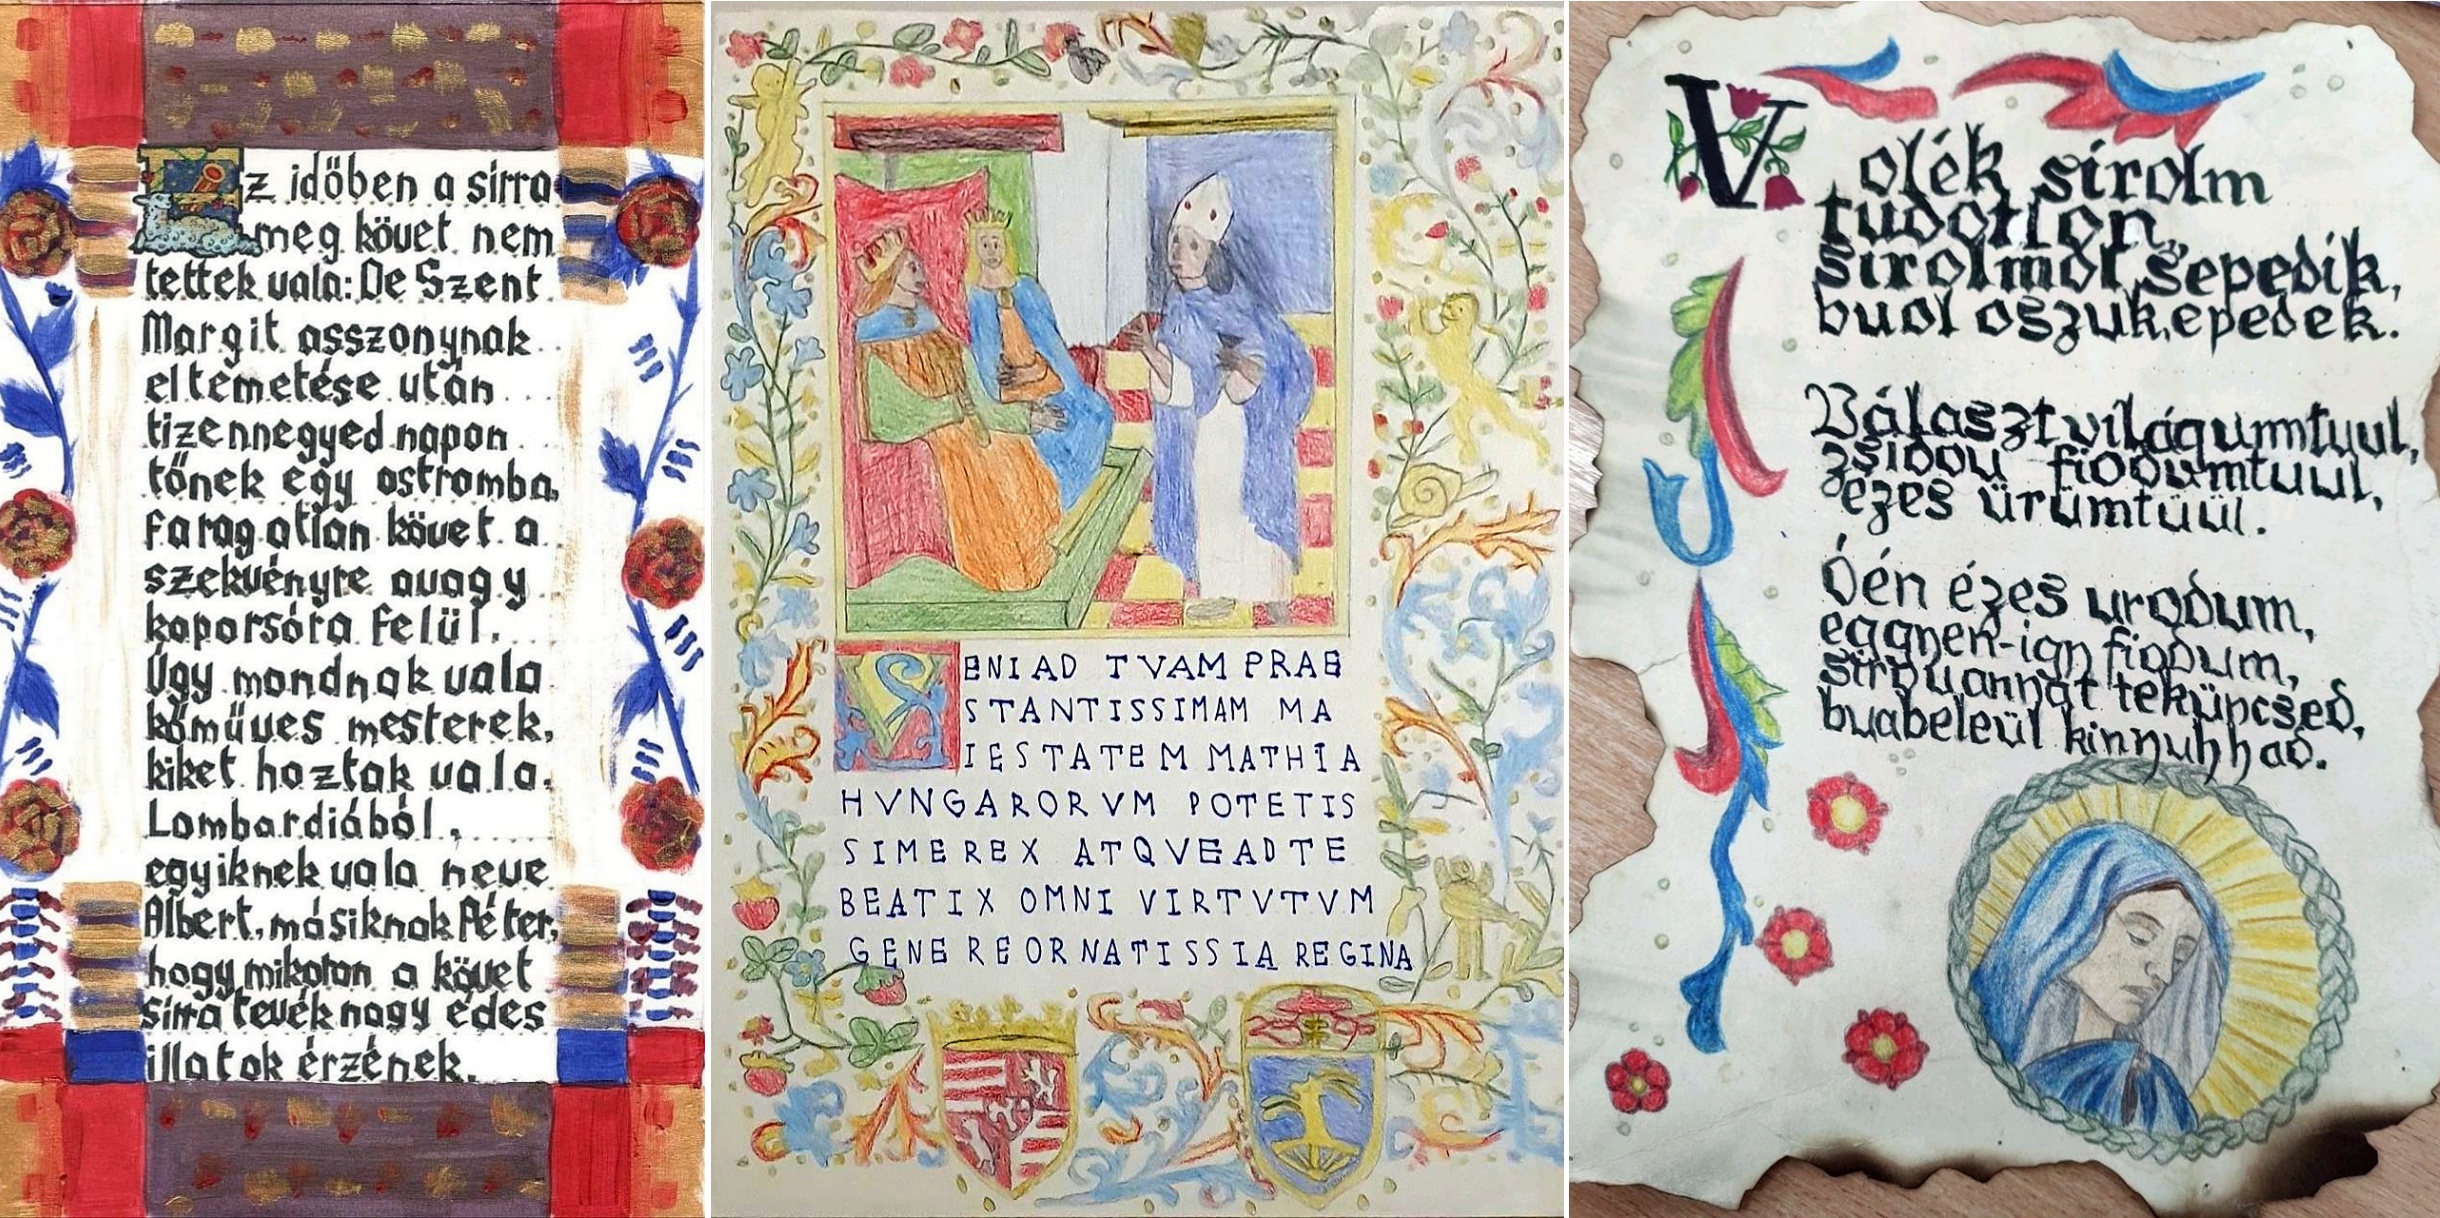 Ez időben a sírra
meg követ nem
tettek vala: De Szent
Margit asszonynak
eltemetése után
tizennegyed napon
tőnek egy ostromba,
faragatlan követ a
szekvényre avagy
koporsóra felül.
Úgy mondnak vala
kőműves mesterek,
kiket hoztak vala.
Lombardiából,
egyiknek vala neve
Albert, másiknak Péter,
hogy mikoron a követ
sírra tevék nagy édes
illatok érzének.
VENI AD TVAM PRAE
STANTISSIMAM MA
IESTATEM MATHIA
HVNGARORVM POTETIS
SIME REX ATQVE AD TE
BEATIX OMNI VIRTVTVM
GENERE ORNATISSIA REGINA
Volék sirolm
tudotlon,
sirolmol sepedik,
buol oszuk, epedek.
Választ világumtuul,
zsidou fiodumtuul,
ézes ürümtüül.
Óén ézes urodum,
eggyen-igy fiodum,
síróu annyát teküncsed,
buabeleül kinyuhhad.